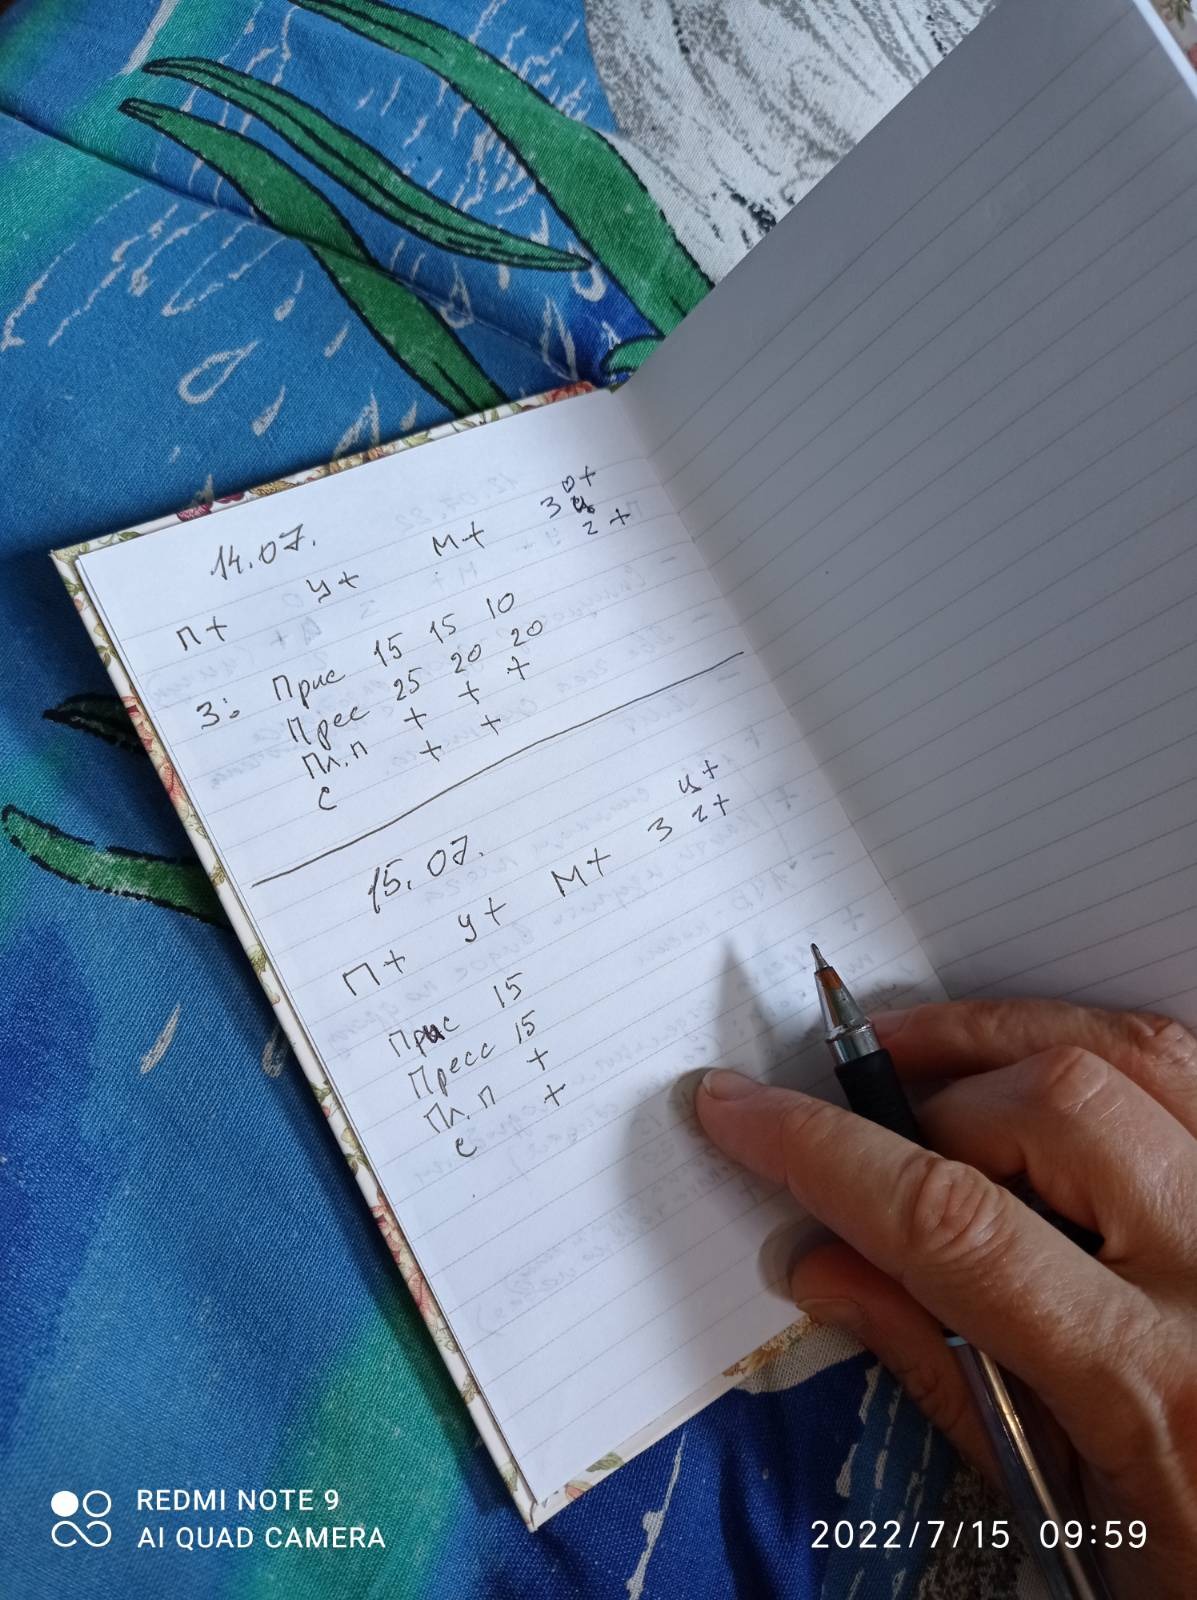 14.07.
П+ У+ М+ З О+
Ц
2+
З: Прис 15 15 10
Прес 25 20 20
Пл.п + + +
С + +
15.07.
П+ У+ М+ З Ц+
2+
Прис 15
Пресс 15
Пл.п +
С +
REDMI NOTE 9
AI QUAD CAMERA
2022/7/15 09:59